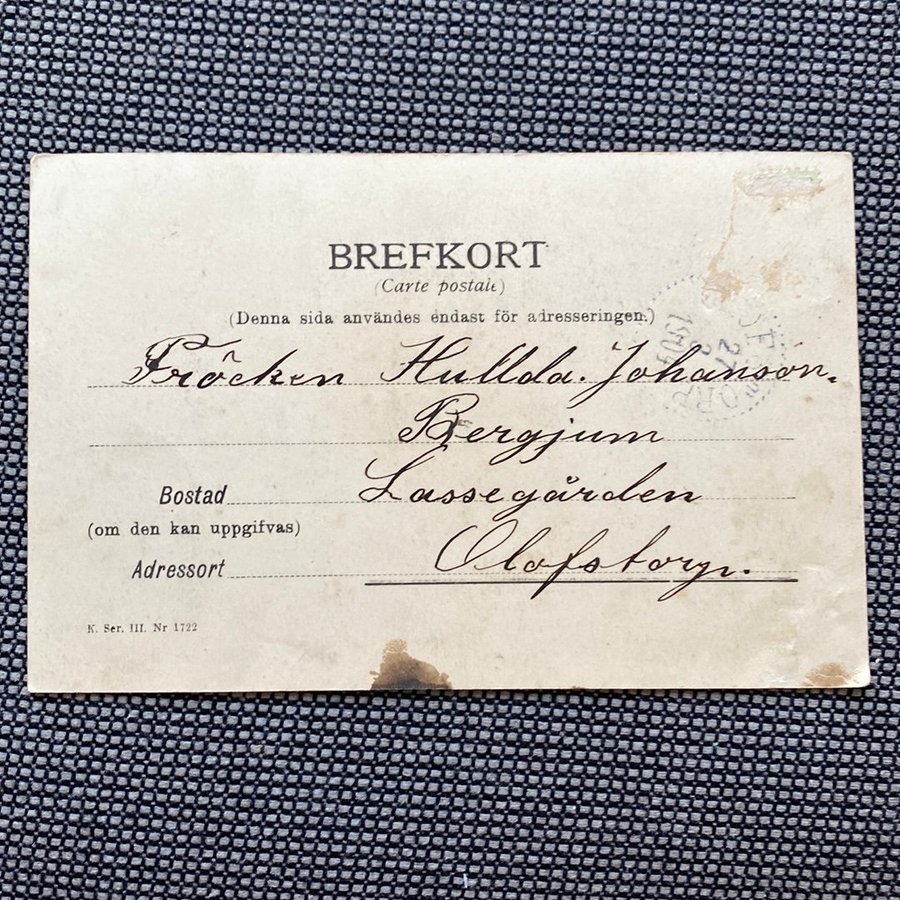 BREFKORT
(Carte postale)
(Denna sida användes endast för adresseringen.)
Fröcken Hullda. Johanson.
Bergjum
Bostad Lassegården
(om den kan uppgifvas)
Adressort Olofstorp.
K. Ser. III. Nr 1722